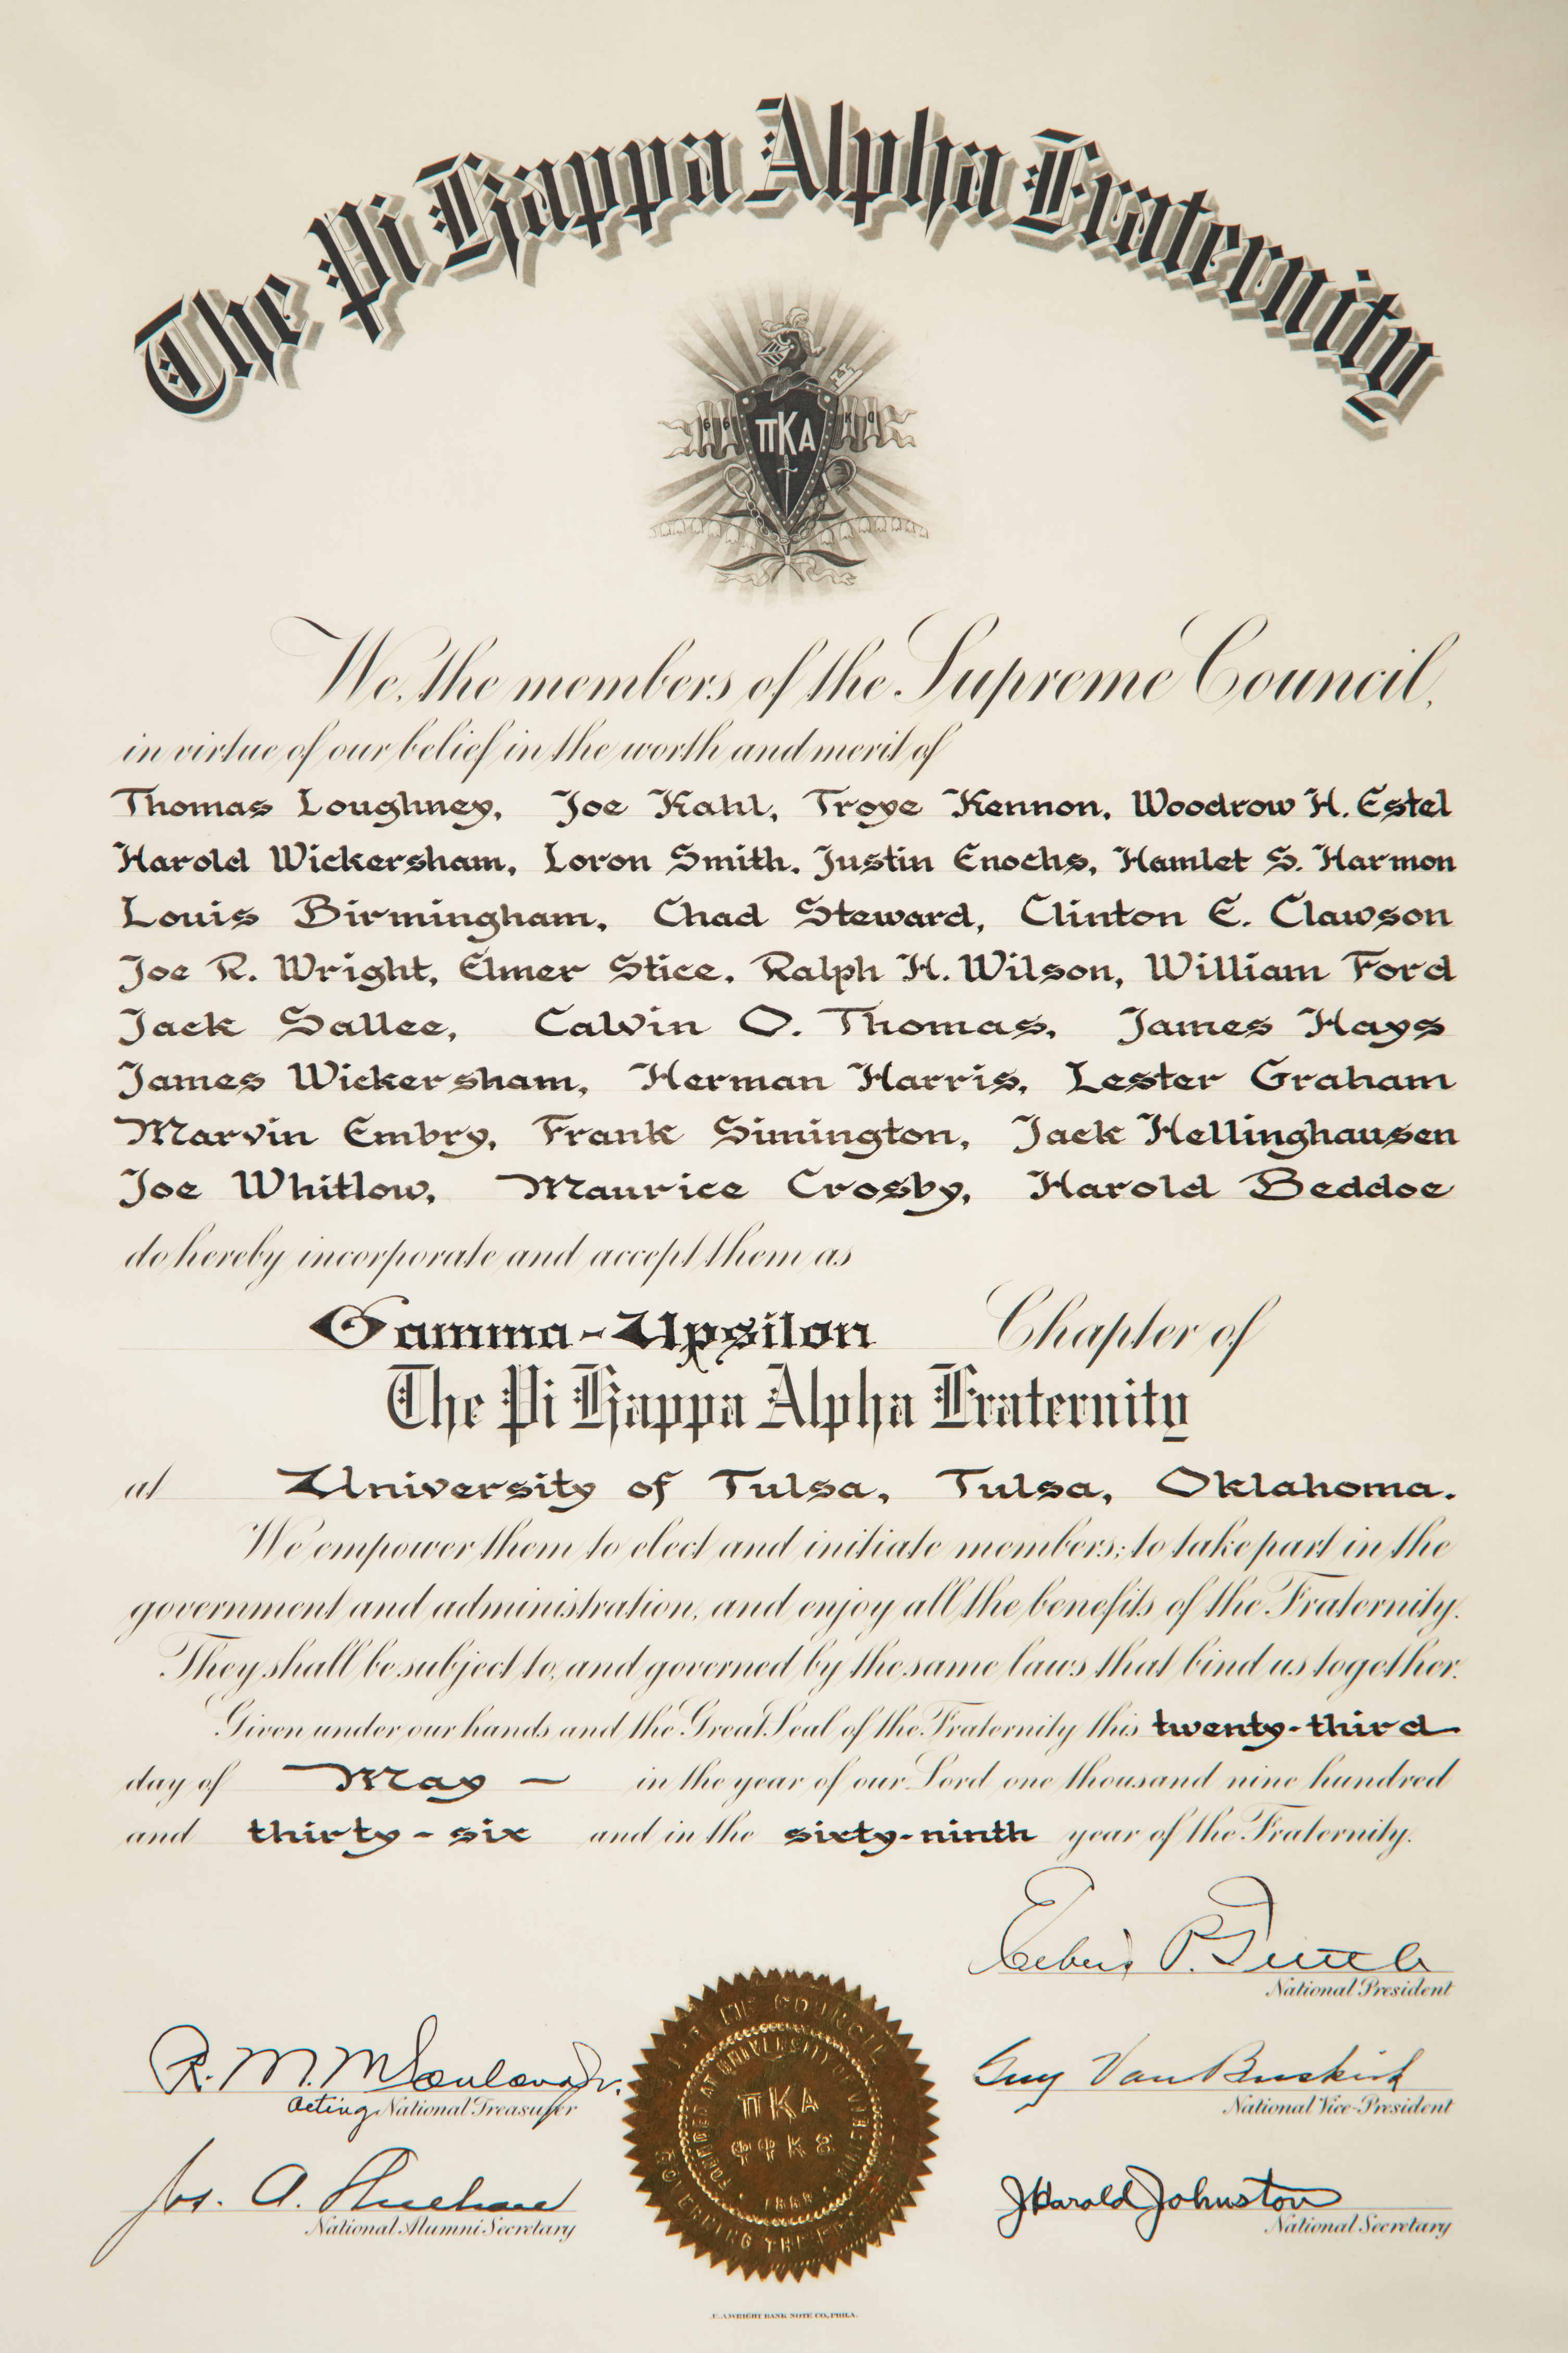 The Pi Kappa Alpha Fraternity
ΠΚΑ
We, the members of the Supreme Council,
in virtue of our belief in the worth and merit of
Thomas Loughney, Joe Kahl, Troye Kennon, Woodrow H. Estel
Harold Wickersham, Loron Smith, Justin Enochs, Hamlet S. Harmon
Louis Birmingham, Chad Steward, Clinton E. Clawson
Joe R. Wright, Elmer Stice, Ralph H. Wilson, William Ford
Jack Sallee, Calvin O. Thomas, James Hays
James Wickersham, Herman Harris, Lester Graham
Marvin Embry, Frank Simington, Jack Hellinghausen
Joe Whitlow, Maurice Crosby, Harold Beddoe
do hereby incorporate and accept them as
Gamma-Upsilon Chapter of
The Pi Kappa Alpha Fraternity
at University of Tulsa, Tulsa, Oklahoma.
We empower them to elect and initiate members; to take part in the
government and administration, and enjoy all the benefits of the Fraternity.
They shall be subject to, and governed by the same laws that bind us together.
Given under our hands and the Great Seal of the Fraternity this twenty-third
day of May – in the year of our Lord one thousand nine hundred
and thirty-six and in the sixty-ninth year of the Fraternity.
National President
Guy Van Buskirk
National Vice-President
R. M.
Acting National Treasurer
Jos. A.
National Alumni Secretary
J Harold Johnston
National Secretary
SUPREME COUNCIL
FOUNDED AT UNIVERSITY OF VIRGINIA
ΠΚΑ
ΦΦΚΑ
E.A. WRIGHT BANK NOTE CO., PHILA.